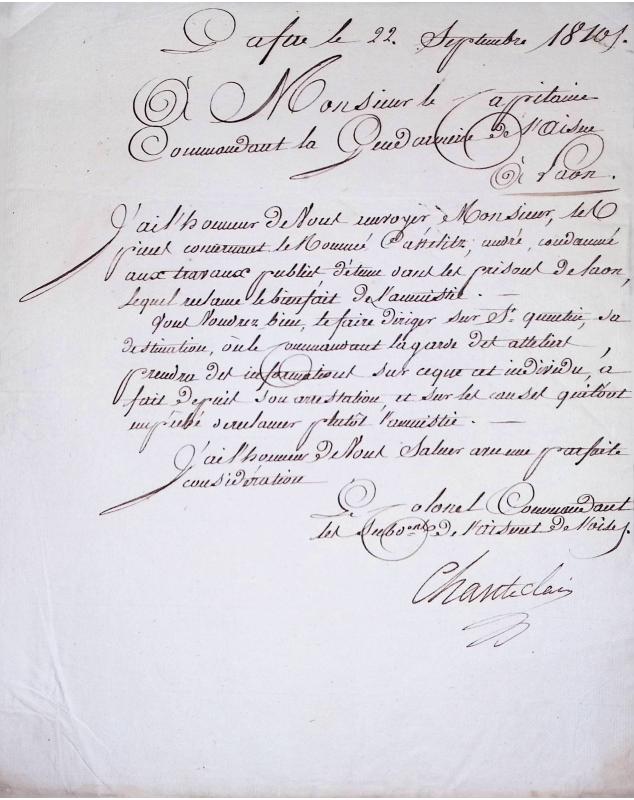 Lafere le 22. Septembre 1810.
À Monsieur le Capitaine
Commandant la Gendarmerie de l'Aisne
À Laon.
J'ai l'honneur de Vous envoyer Monsieur, les
pieces concernant le Nommé andré, condamné
aux travaux publics détenu dans les prisons de laon,
lequel reclame le bienfait de l'amnistie. —
Vous Voudrez bien, le faire diriger sur St. quentin, sa
destination, où le Commandant la garde des atteliers
prendra des informations sur ce que cet individu, a
fait depuis son arrestation, et sur les causes qui l'ont
empêché de reclamer plutôt l'amnistie. —
J'ai l'honneur de Vous Saluer avec une parfaite
considération
Le Colonel Commandant
les de l'aisne et de l'oise.
Chanteclair